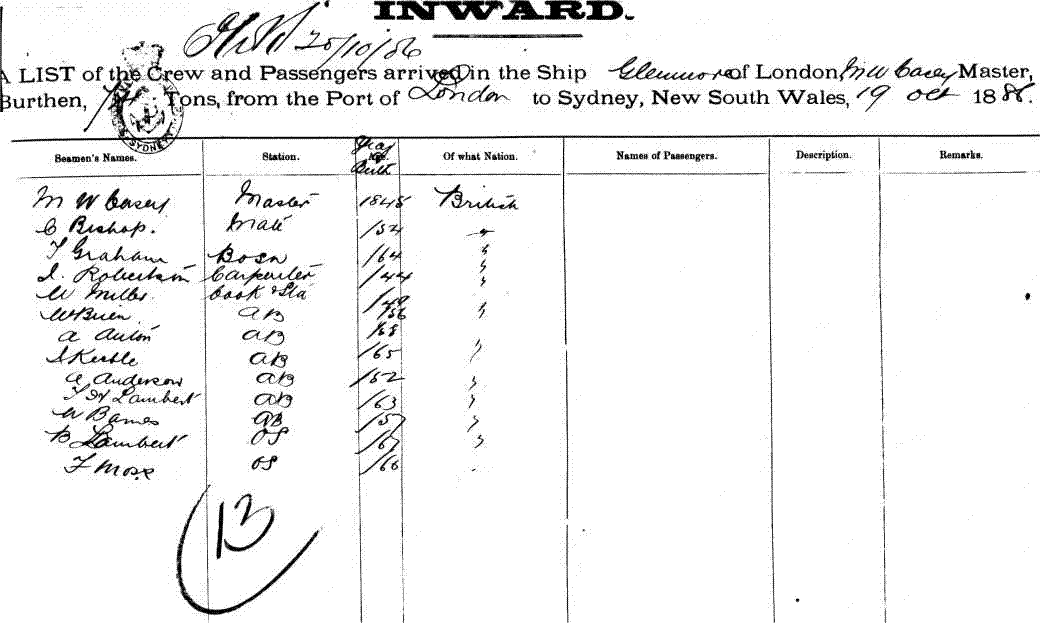 INWARD.
25/10/86
A LIST of the Crew and Passengers arrived in the Ship Glenmore of London, M W Casey Master,
Burthen, Tons, from the Port of London to Sydney, New South Wales, 19 Oct 1886.
SYDNEY
Year
Birth
Seamen's Names. Station. Age. Of what Nation. Names of Passengers. Description. Remarks.
M W Casey Master 1845 British
C Bishop. Mate /54 "
T Graham Bosn /64 "
Robertson Carpenter /44 "
W Miller Cook & Std /49
W Buen AB /56 "
A Anton AB /68
S Keeble AB /65 "
A Anderson AB /52 "
T H Lambert AB /63 "
W Barnes AB /57 "
B Lambert OS /67 "
F Moss OS /66
13